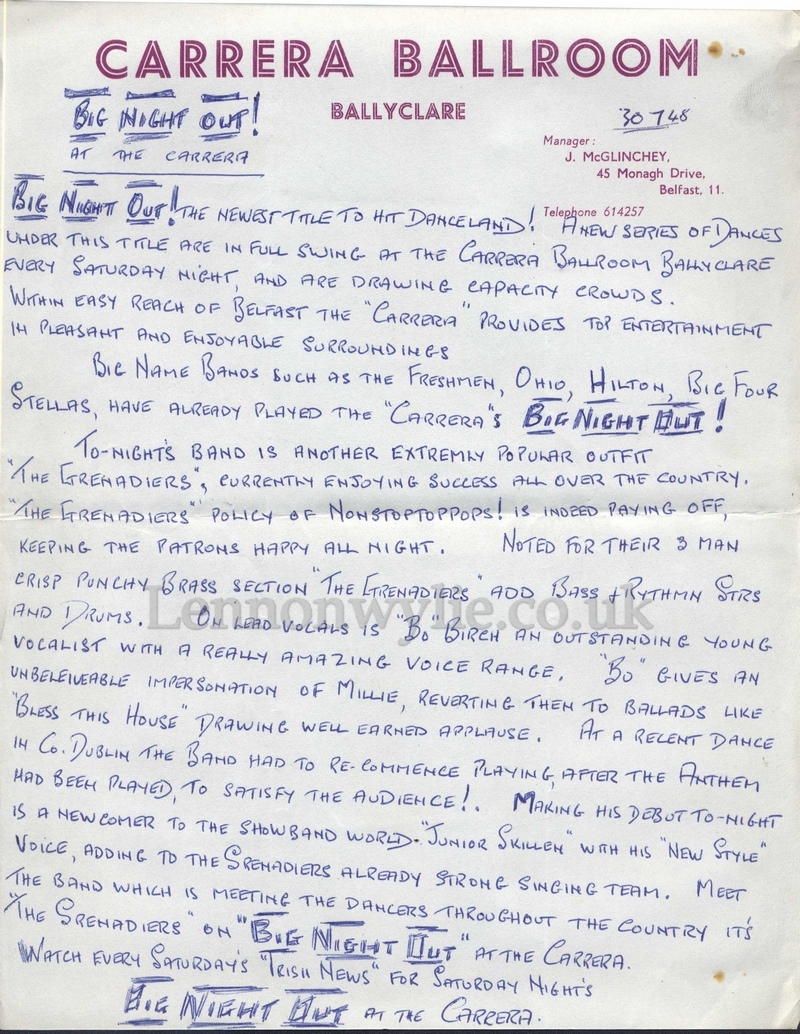 CARRERA BALLROOM
BALLYCLARE
BIG NIGHT OUT!
AT THE CARRERA
30748
Manager:
J. McGLINCHEY,
45 Monagh Drive,
Belfast, 11.
Telephone 614257
BIG NIGHT OUT! THE NEWEST TITLE TO HIT DANCELAND! A NEW SERIES OF DANCES
UNDER THIS TITLE ARE IN FULL SWING AT THE CARRERA BALLROOM BALLYCLARE
EVERY SATURDAY NIGHT, AND ARE DRAWING CAPACITY CROWDS.
WITHIN EASY REACH OF BELFAST THE "CARRERA" PROVIDES TOP ENTERTAINMENT
IN PLEASANT AND ENJOYABLE SURROUNDINGS
BIG NAME BANDS SUCH AS THE FRESHMEN, OHIO, HILTON, BIG FOUR
STELLAS, HAVE ALREADY PLAYED THE "CARRERA"S BIG NIGHT OUT!
TO-NIGHT'S BAND IS ANOTHER EXTREMLY POPULAR OUTFIT
"THE GRENADIERS", CURRENTLY ENJOYING SUCCESS ALL OVER THE COUNTRY.
"THE GRENADIERS" POLICY OF NONSTOPTOPPOPS! IS INDEED PAYING OFF,
KEEPING THE PATRONS HAPPY ALL NIGHT. NOTED FOR THEIR 3 MAN
CRISP PUNCHY BRASS SECTION "THE GRENADIERS" ADD BASS & RYTHMN GTRS
AND DRUMS. ON LEAD VOCALS IS "BO" BIRCH AN OUTSTANDING YOUNG
VOCALIST WITH A REALLY AMAZING VOICE RANGE. "BO" GIVES AN
UNBELEIVEABLE IMPERSONATION OF MILLIE, REVERTING THEN TO BALLADS LIKE
"BLESS THIS HOUSE" DRAWING WELL EARNED APPLAUSE. AT A RECENT DANCE
IN CO. DUBLIN THE BAND HAD TO RE-COMMENCE PLAYING, AFTER THE ANTHEM
HAD BEEN PLAYED, TO SATISFY THE AUDIENCE!. MAKING HIS DEBUT TO-NIGHT
IS A NEWCOMER TO THE SHOWBAND WORLD - "JUNIOR SKILLEN" WITH HIS "NEW STYLE"
VOICE, ADDING TO THE GRENADIERS ALREADY STRONG SINGING TEAM. MEET
THE BAND WHICH IS MEETING THE DANCERS THROUGHOUT THE COUNTRY IT'S
"THE GRENADIERS" ON "BIG NIGHT OUT" AT THE CARRERA.
WATCH EVERY SATURDAY'S "IRISH NEWS" FOR SATURDAY NIGHT'S
BIG NIGHT OUT AT THE CARRERA.
Lennonwylie.co.uk